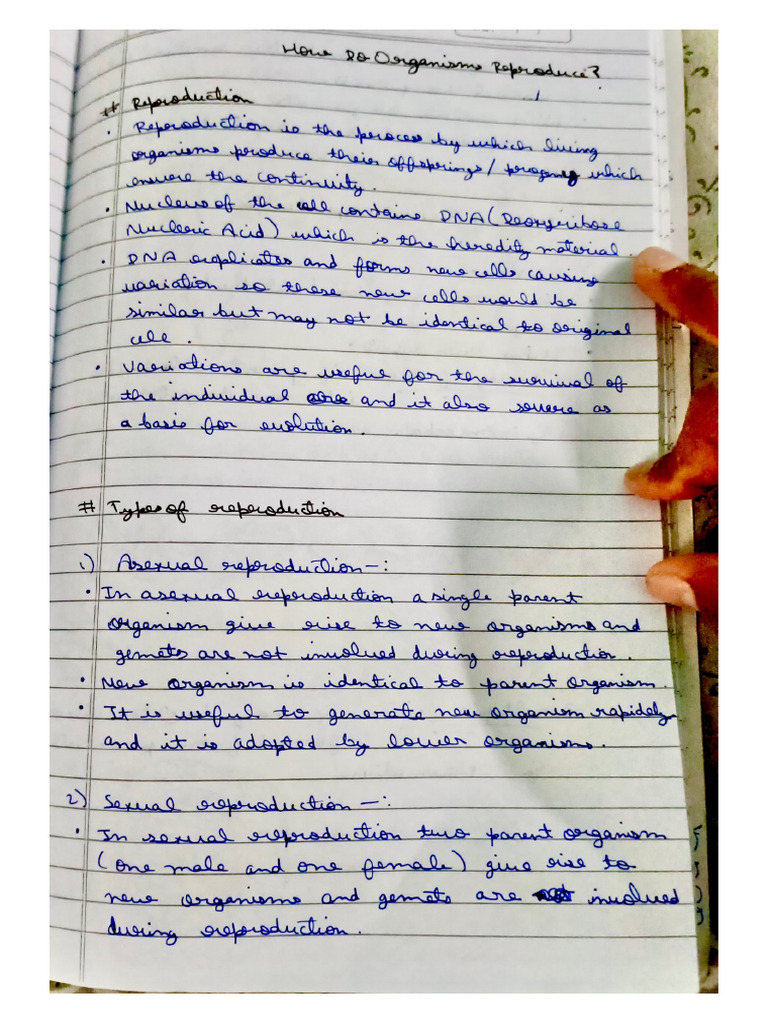 How Do Organisms Reproduce?
# Reproduction
• Reproduction is the process by which living
organisms produce their offsprings/ progeny which
ensure the continuity.
• Nucleus of the cell contains DNA (Deoxyribose
Nucleric Acid) which is the heredity material.
• DNA replicates and forms new cells causing
variation so these new cells would be
similar but may not be identical to original
cell.
• Variations are useful for the survival of
the individual and it also serve as
a basis for evolution.
# Types of reproduction
1) Asexual reproduction -:
• In asexual reproduction a single parent
organism give rise to new organisms and
gemets are not involved during reproduction.
• New organism is identical to parent organism.
• It is useful to generate new organism rapidely
and it is adopted by lower organisms.
2) Sexual reproduction -:
• In sexual reproduction two parent organism
(one male and one female) give rise to
new organisms and gemets are involved
during reproduction.